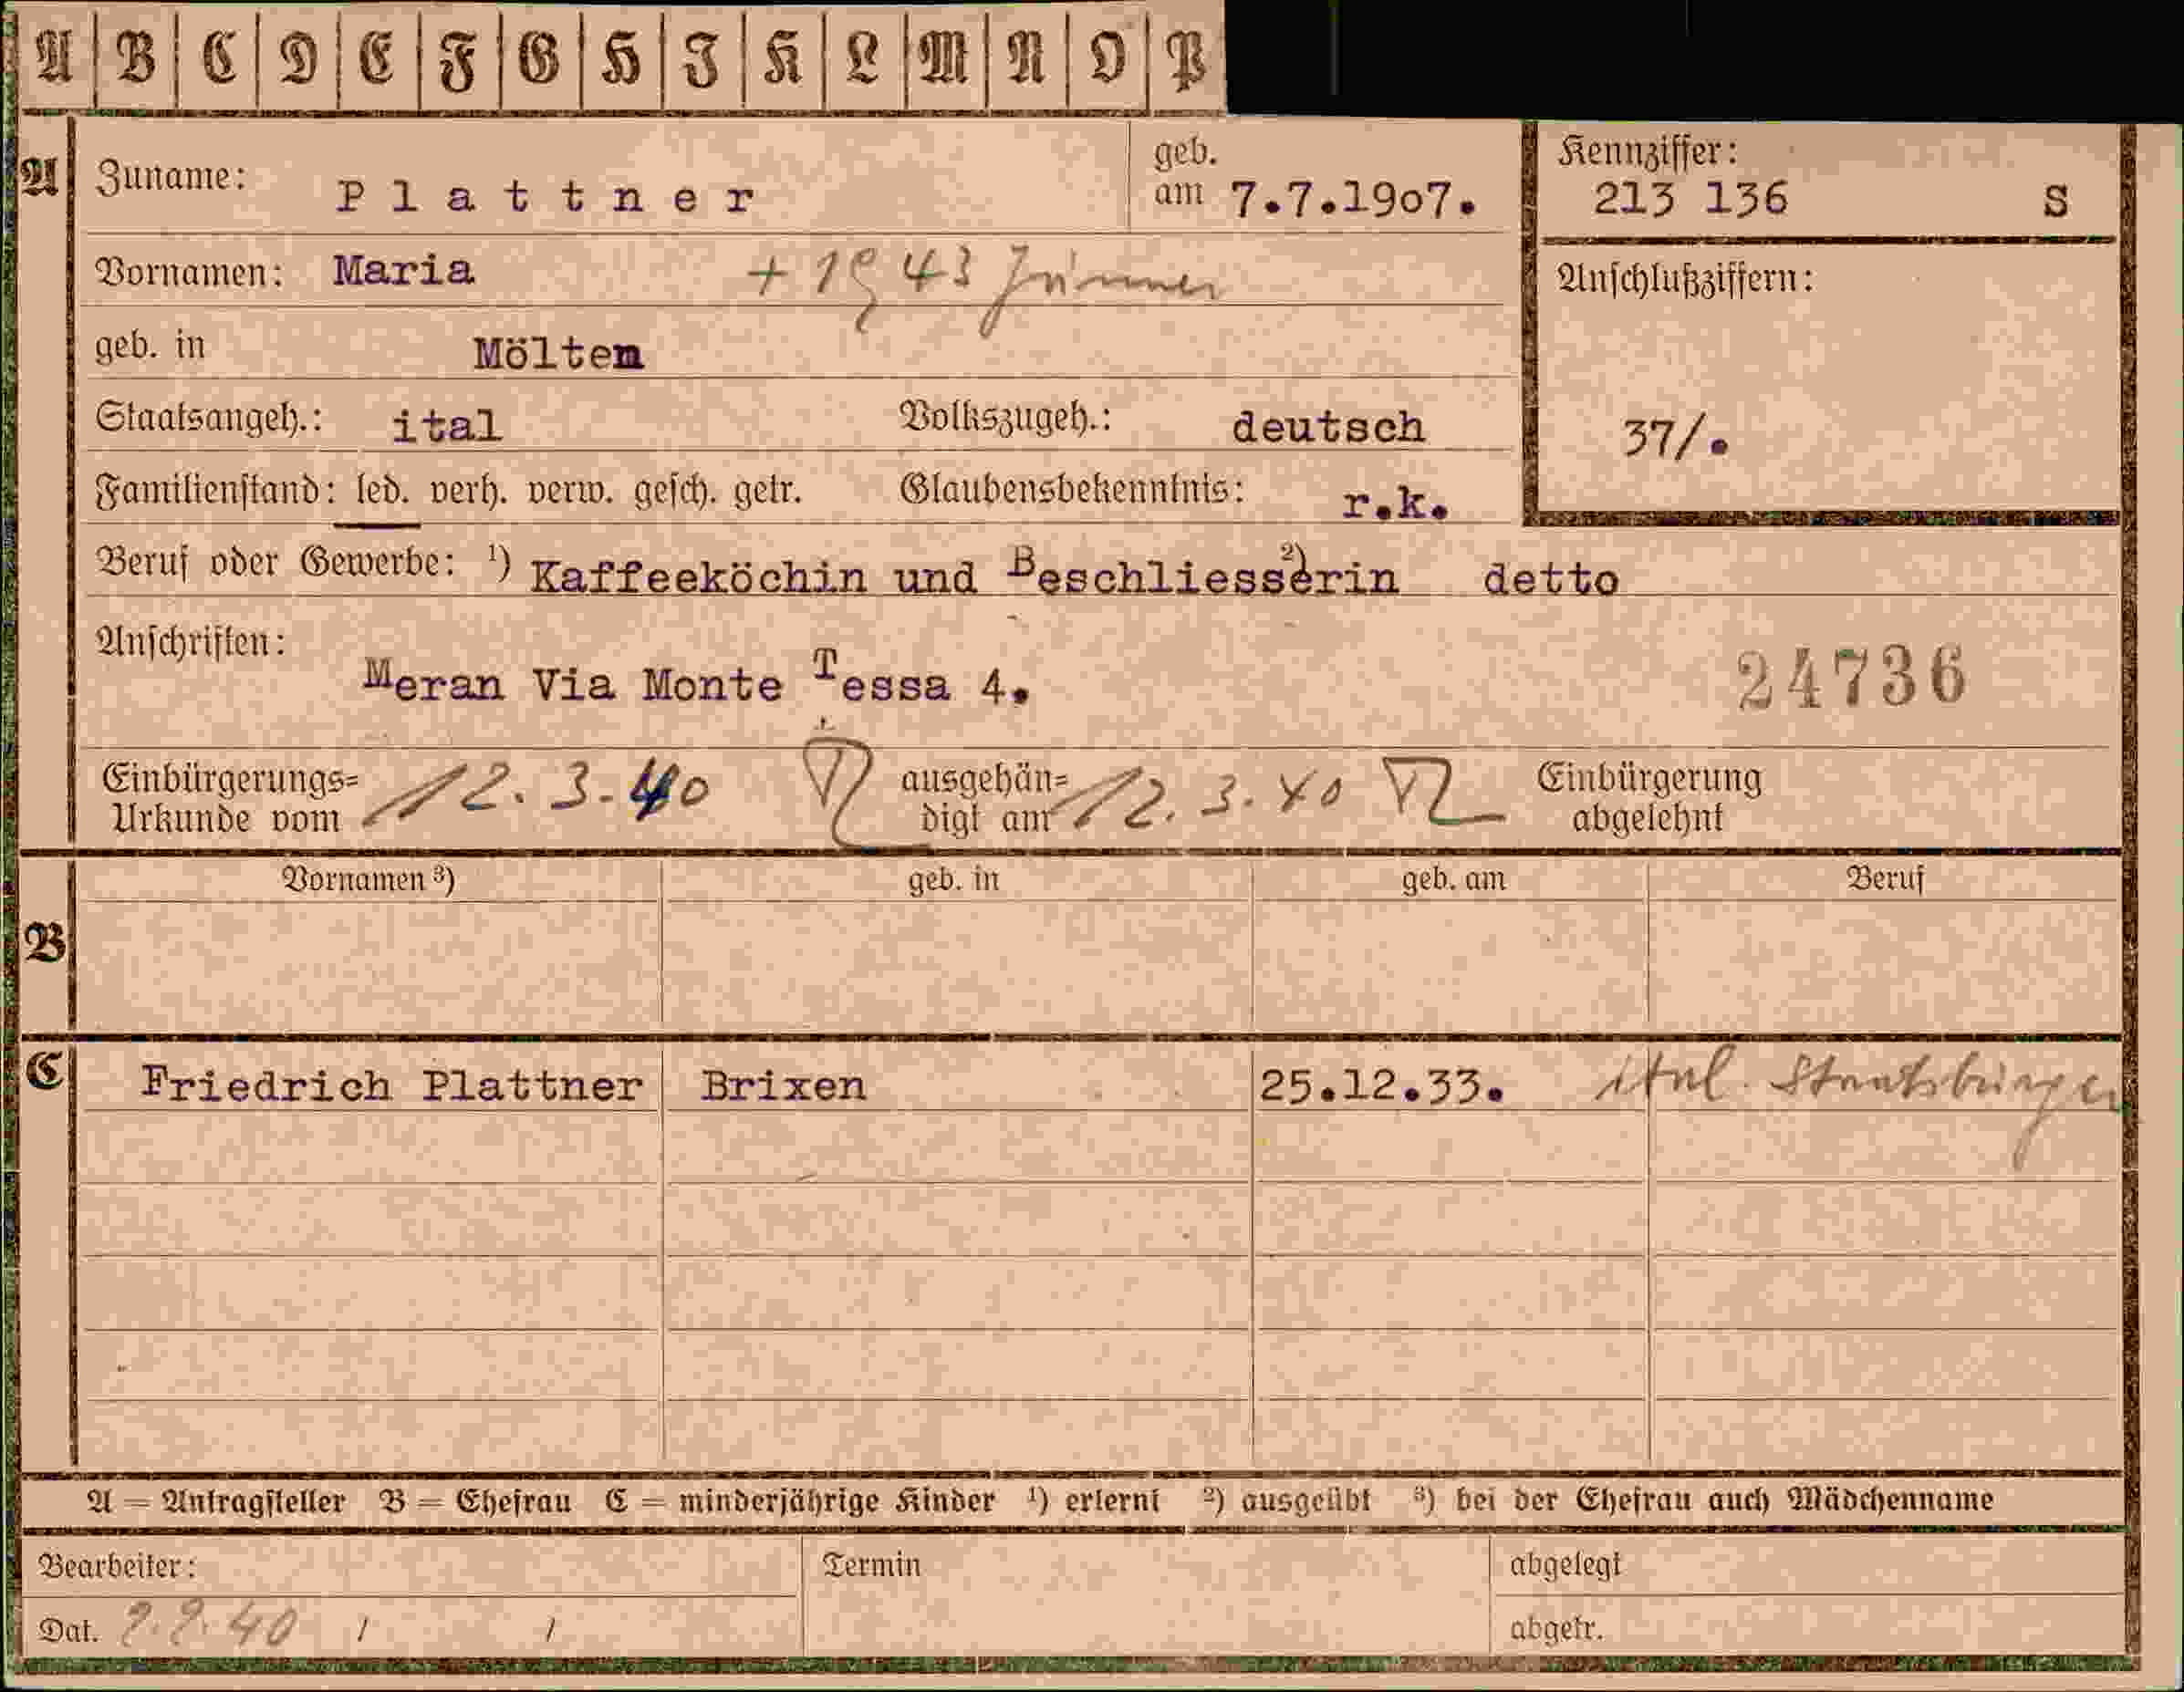 A B C D E F G H I K L M N O P
A Zuname: Plattner geb. am 7.7.1907. Kennziffer: 213 136 S
Vornamen: Maria + 1943 Anschlußziffern:
geb. in Mölten
Staatsangeh.: ital Volkszugeh.: deutsch 37/.
Familienstand: led. verh. verw. gesch. getr. Glaubensbekenntnis: r.k.
Beruf oder Gewerbe: ¹) Kaffeeköchin und Beschliesserin ²) detto
Anschriften:
Meran Via Monte Tessa 4. 24736
Einbürgerungs= Urkunde vom 12.3.40 ausgehän= digt am 12.3.40 Einbürgerung abgelehnt
Vornamen ³) geb. in geb. am Beruf
B
C Friedrich Plattner Brixen 25.12.33. ital. Staatsbürger
A = Antragsteller B = Ehefrau C = minderjährige Kinder ¹) erlernt ²) ausgeübt ³) bei der Ehefrau auch Mädchenname
Bearbeiter: Termin abgelegt
Dat. / / abgetr.